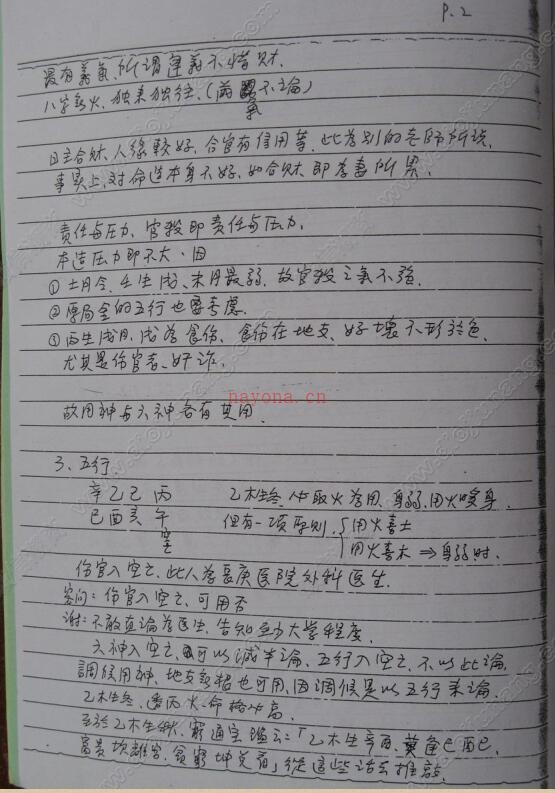 P.2
最有義氣,所謂仗義不惜財.
八字缺火,獨來獨往.(滿 不論)
氣
日主合財,人緣較好,合官有信用等,此為別的老師所說,
事實上,对命造本身不好,如合財即為妻所累.
責任与压力,官殺即責任与压力,
本造压力即不大.因
①土月令,生浅,未月最弱,故官殺之氣不強.
②原局全的五行也要考慮.
③丙生浅月,浅為食伤,食伤在地支,好壞不形於色,
尤其是伤官者,奸诈.
故用神与六神各有其用.
3、五行.
辛乙己丙 乙木生冬,必取火為用,身弱,用火暖身
巳酉亥午 但有一項原則 用火喜土
空 用火喜木 ⇒ 身弱时.
伤官入空亡,此人為長庚医院外科医生.
客问:伤官入空亡,可用否
谢:不敢直論為医生,告知至少大学程度.
六神入空亡,可以減半論,五行入空亡,不以此論,
調候用神,地支缺根也可用,因調候是以五行来論.
乙木生冬,透丙火,命格必高.
至於乙木生秋,窮通宝鑑云:「乙木生辛酉,莫逢巳酉丑,
富貴坎離宮,貧窮坤兌宮」從這些話去推敲.
nayona.cn